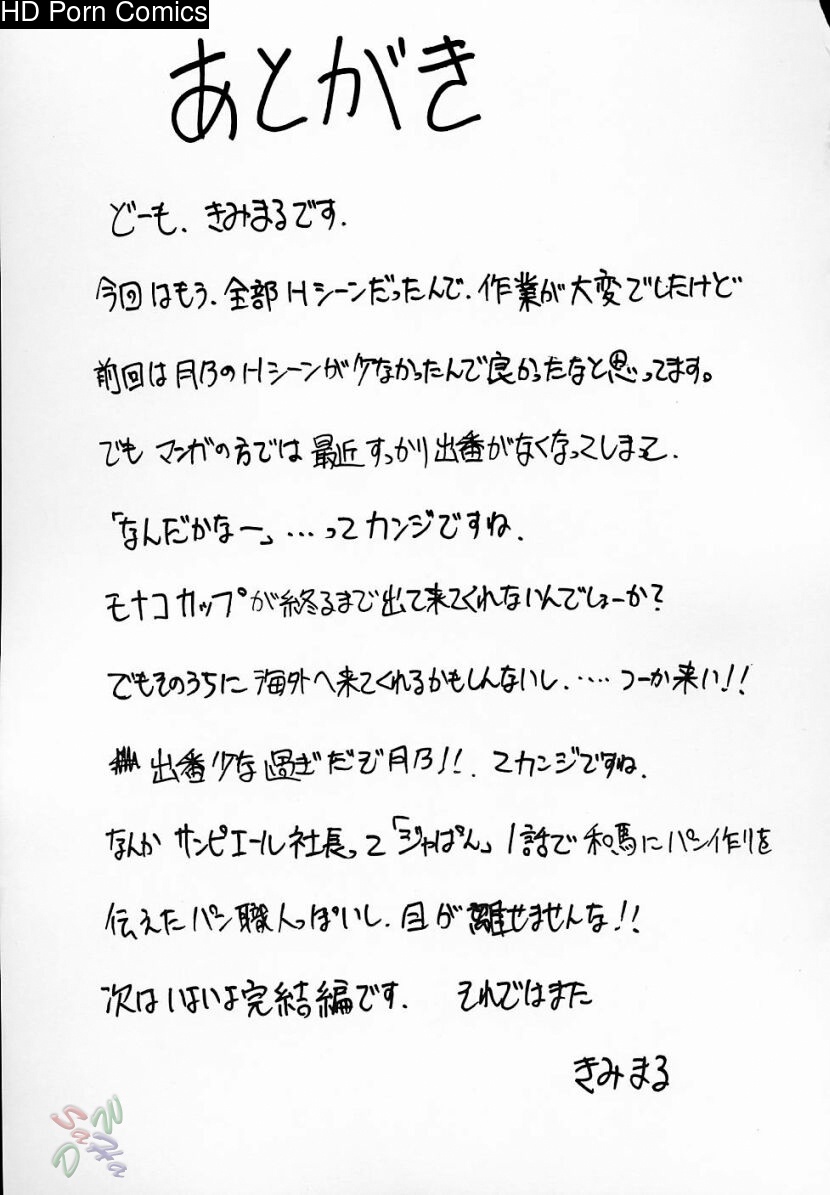 HD Porn Comics
あとがき
どーも、きみまるです.
今回はもう、全部Hシーンだったんで、作業が大変でしたけど
前回は月乃のHシーンが少なかったんで良かったなと思ってます。
でも マンガの方では 最近 すっかり 出番がなくなってしまって、
「なんだかなー」…ってカンジですね、
モナコカップが終るまで出て来てくれないんでしょーか?
でもそのうちに 海外へ来てくれるかもしんないし、…‥ つーか来い!!
出番少な過ぎだぞ月乃!!、てカンジですね、
なんか サンピエール社長って「ジャぱん」1話で 和馬にパン作りを
伝えたパン職人っぽいし、目が離せませんな!!
次はいよいよ完結編です. それではまた
きみまる
SaHa